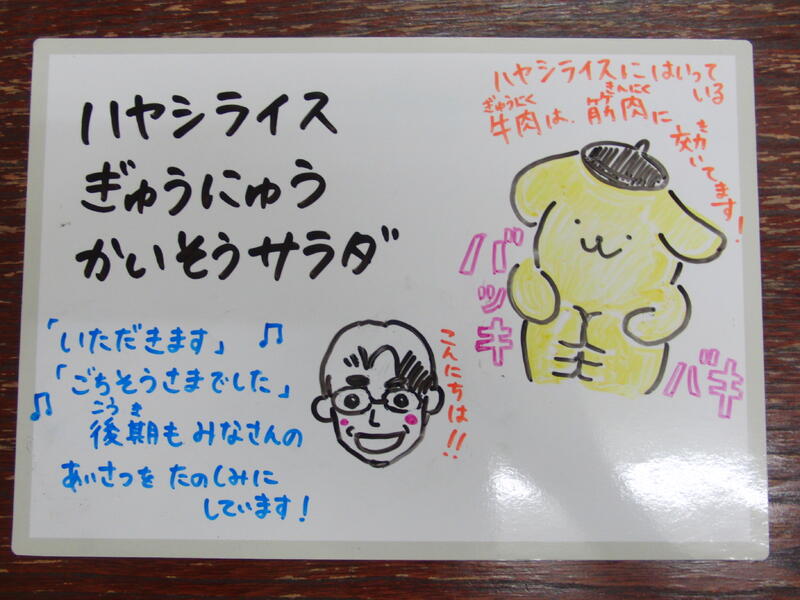 ハヤシライス
ぎゅうにゅう
かいそうサラダ
ハヤシライスにはいって
いる
ぎゅうにく きんにく
牛肉は、筋肉に
き
効いてます!
バッキ
バキ
こんにちは!!
「いただきます」
「ごちそうさまでした」
こうき
後期もみなさんの
あいさつをたのしみに
しています!